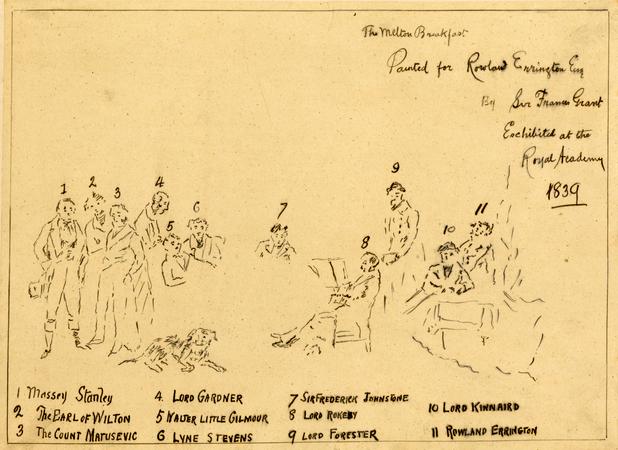 The Melton Breakfast
Painted for Rowland Errington Esq
By Sir Francis Grant
Exhibited at the
Royal Academy
1839
1
2
3
4
5
6
7
8
9
10
11
1 Massey Stanley
2 The Earl of Wilton
3 The Count Matusevic
4. Lord Gardner
5 Walter Little Gilmour
6 Lyne Stevens
7 Sir Frederick Johnstone
8 Lord Rokeby
9 Lord Forester
10 Lord Kinnaird
11 Rowland Errington